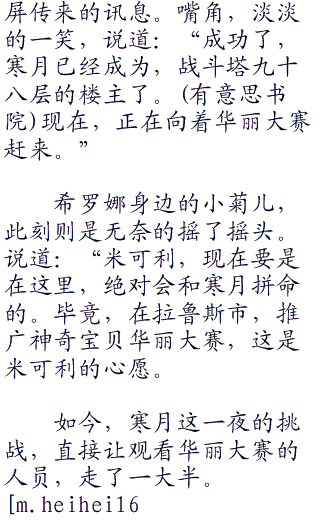 屏传来的讯息。嘴角，淡淡
的一笑，说道：“成功了，
寒月已经成为，战斗塔九十
八层的楼主了。(有意思书
院)现在，正在向着华丽大赛
赶来。”
希罗娜身边的小菊儿，
此刻则是无奈的摇了摇头。
说道：“米可利，现在要是
在这里，绝对会和寒月拼命
的。毕竟，在拉鲁斯市，推
广神奇宝贝华丽大赛，这是
米可利的心愿。
如今，寒月这一夜的挑
战，直接让观看华丽大赛的
人员，走了一大半。
[m.heihei16